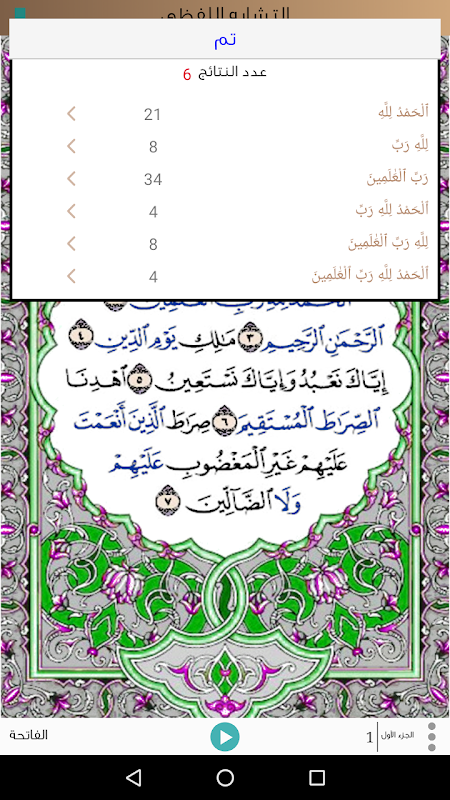 التشابه اللفظي
تم
عدد النتائج 6
ٱلْحَمْدُ لِلَّهِ 21
لِلَّهِ رَبِّ 8
رَبِّ ٱلْعَٰلَمِينَ 34
ٱلْحَمْدُ لِلَّهِ رَبِّ 4
لِلَّهِ رَبِّ ٱلْعَٰلَمِينَ 8
ٱلْحَمْدُ لِلَّهِ رَبِّ ٱلْعَٰلَمِينَ 4
ٱلْحَمْدُ لِلَّهِ رَبِّ ٱلْعَٰلَمِينَ
ٱلرَّحْمَٰنِ ٱلرَّحِيمِ ٣ مَٰلِكِ يَوْمِ ٱلدِّينِ ٤
إِيَّاكَ نَعْبُدُ وَإِيَّاكَ نَسْتَعِينُ ٥ ٱهْدِنَا
ٱلصِّرَٰطَ ٱلْمُسْتَقِيمَ ٦ صِرَٰطَ ٱلَّذِينَ أَنْعَمْتَ
عَلَيْهِمْ غَيْرِ ٱلْمَغْضُوبِ عَلَيْهِمْ
وَلَا ٱلضَّآلِّينَ ٧
الجزء الأول 1
الفاتحة